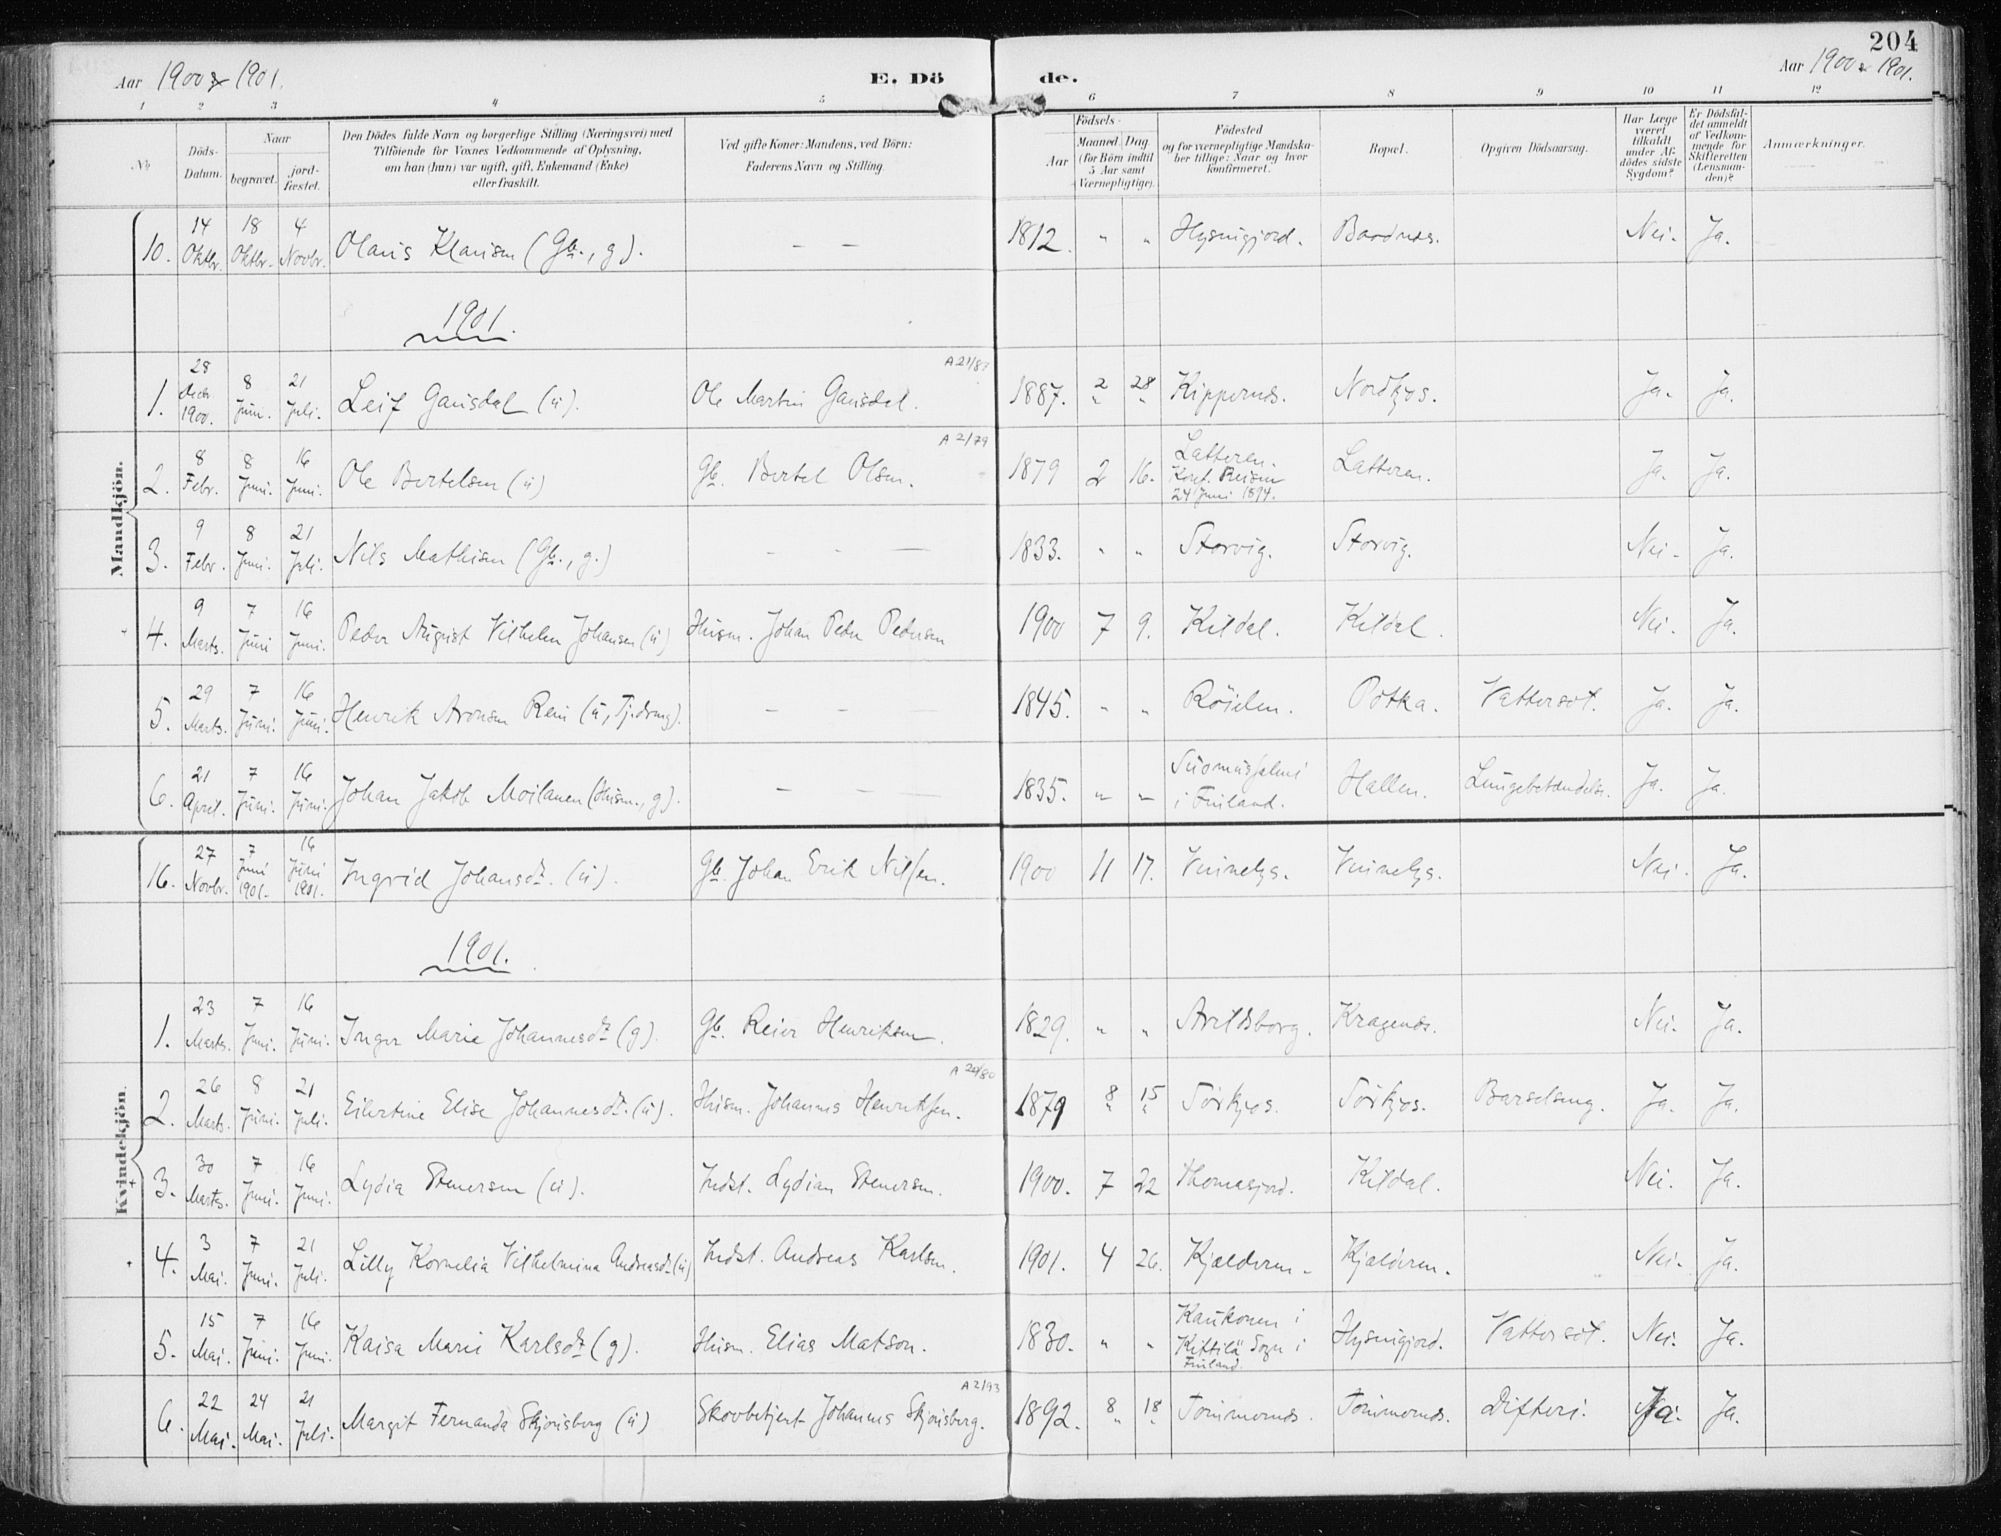 204
Aar 1900 & 1901.
E. Dö de.
Aar 1900 & 1901.
1 2 3 4 5 6 7 8 9 10 11 12
No.
Döds-Datum.
Naar
begravet.
jord-fæstet.
Den Dödes fulde Navn og borgerlige Stilling (Næringsvei) med
Tilföiende for Voxnes Vedkommende af Oplysning,
om han (hun) var ugift, gift, Enkemand (Enke)
eller fraskilt.
Ved gifte Koner: Mandens, ved Börn:
Faderens Navn og Stilling.
Födsels-
Aar
Maaned. Dag.
(for Börn indtil
5 Aar samt
Værnepligtige).
Födested
og for værnepligtige Mandska-
ber tillige: Naar og hvor
konfirmeret.
Bopæl.
Opgiven Dödsaarsag.
Har Læge
været
tilkaldt
under Af-
dödes sidste
Sygdom?
Er Dödsfal-
det anmeldt
af Vedkom-
mende for
Skifteretten
(Lensman-
den)?
Anmærkninger.
Mandkjön.
10. 14 Oktbr. 18 Oktbr. 4 Novbr. Olaus Klausen (Gb., g). — — 1812. " " Hysingjord. Baardnes. Nei. Ja.
1901.
A 21/87
1. 28 Decbr. 1900. 8 Juni. 21 Juli. Leif Gausdal (u). Ole Martin Gausdal. 1887. 2 28 Kippernes. Nordkjos. Ja. Ja.
A 2/79
2. 8 Febr. 8 Juni. 16 Juni. Ole Bertelsen (u) Gb. Bertel Olsen. 1879 2 16. Latteren. Konf. Reisen 24 Juni 1894. Latteren. Ja. Ja.
3. 9 Febr. 8 Juni. 21 Juli. Nils Mathisen (Gb., g.) — — — 1833. " " Storvig. Storvig. Nei. Ja.
4. 9 Marts. 7 Juni 16 Juni. Peder August Vilhelm Johansen (u) Husm. Johan Peder Pedersen 1900 7 9. Kildal. Kildal. Nei. Ja.
5. 29 Marts. 7 Juni. 16 Juni. Henrik Aronsen Rein (u, Tjdreng). — — — 1845. " " Röielen. Potka. Vattersot. Ja. Ja.
6. 21 April. 7 Juni. 16 Juni. Johan Jakob Moilanen (Husm., g). — — — 1835. " " Suomussalmi i Finland. Hallen. Lungebetændelse. Ja. Ja.
Kvindekjön.
16. 27 Novbr. 7 Juni 1901. 16 Juni 1901. Ingrid Johansdt. (u). Gb. Johan Erik Nilsen. 1900 11 17. Vinnelys. Vinnelys. Nei. Ja.
1901.
1. 23 Marts. 7 Juni. 16 Juni. Inger Marie Johannesdt (g). Gb. Reier Henriksen. 1829. " " Arildsborg. Kragenes. Nei. Ja.
A 20/80
2. 26 Marts. 8 Juni. 21 Juli. Eilertine Elise Johannesdt. (u). Husm. Johannes Henriksen. 1879 8 15 Sörkjos. Sörkjos. Barselseng. Ja. Ja.
3. 30 Marts. 7 Juni. 16 Juni. Lydia Stenersen (u). Indst. Lydian Stenersen. 1900. 7 22 Thomasjord. Kildal. Nei. Ja.
4. 3 Mai. 7 Juni. 21 Juli. Lilly Kornelia Vilhelmina Andreasdt (u) Indst. Andreas Karlsen. 1901. 4 26. Kjælderen. Kjælderen. Nei. Ja.
5. 15 Mai. 7 Juni. 16 Juni. Kaisa Marie Karlsdt (g). Husm. Elias Matson. 1830. " " Kaukonen i Kittilä Sogn i Finland. Hysingjord. Vattersot. Nei. Ja.
A 2/93
6. 22 Mai. 24 Mai. 21 Juli. Margit Fernanda Skjonsberg (u) Skovbetjent Johannes Skjonsberg. 1892. 8 18 Tömmernes. Tömmernes. Difteri. Ja. Ja.